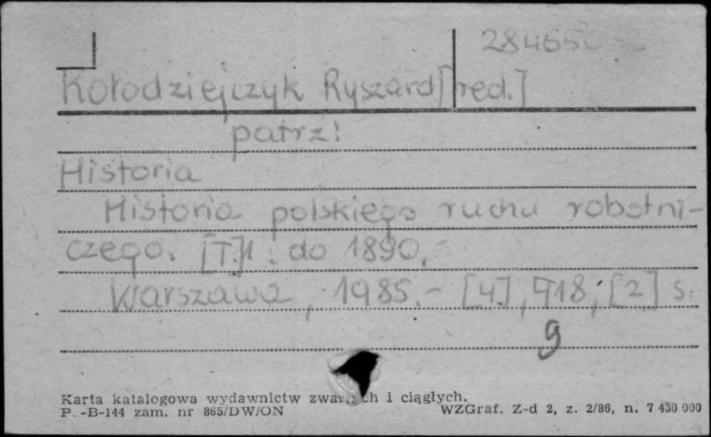 Kołodziejczyk Ryszard [red.]
patrz:
Historia
Historia polskiego ruchu robotni-
czego. [T.]1: do 1890.-
Warszawa, 1985.- [4], 718, [2] s.
9
Karta katalogowa wydawnictw zwartych i ciągłych.
P.-B-144 zam. nr 865/DW/ON WZGraf. Z-d 2, z. 2/86, n. 7 430 000